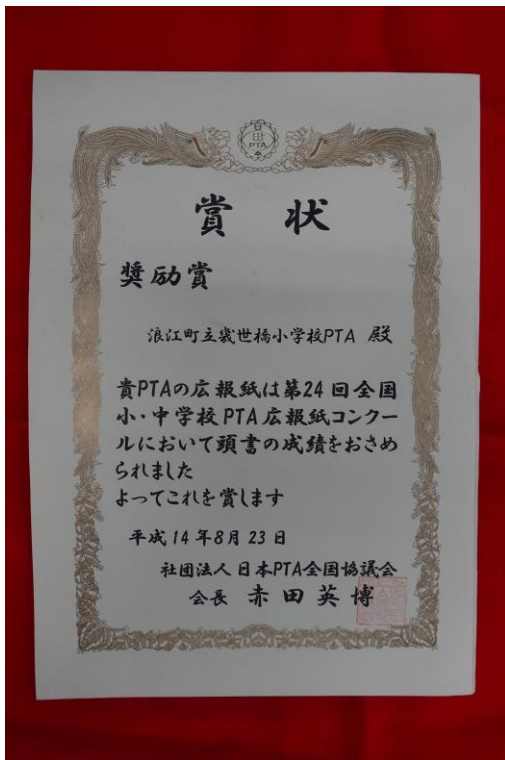 日
PTA
賞状
奨励賞
浪江町立幾世橋小学校PTA 殿
貴PTAの広報紙は第24回全国
小・中学校PTA広報紙コンクー
ルにおいて頭書の成績をおさめ
られました
よってこれを賞します
平成14年8月23日
社団法人日本PTA全国協議会
会長 赤田英博